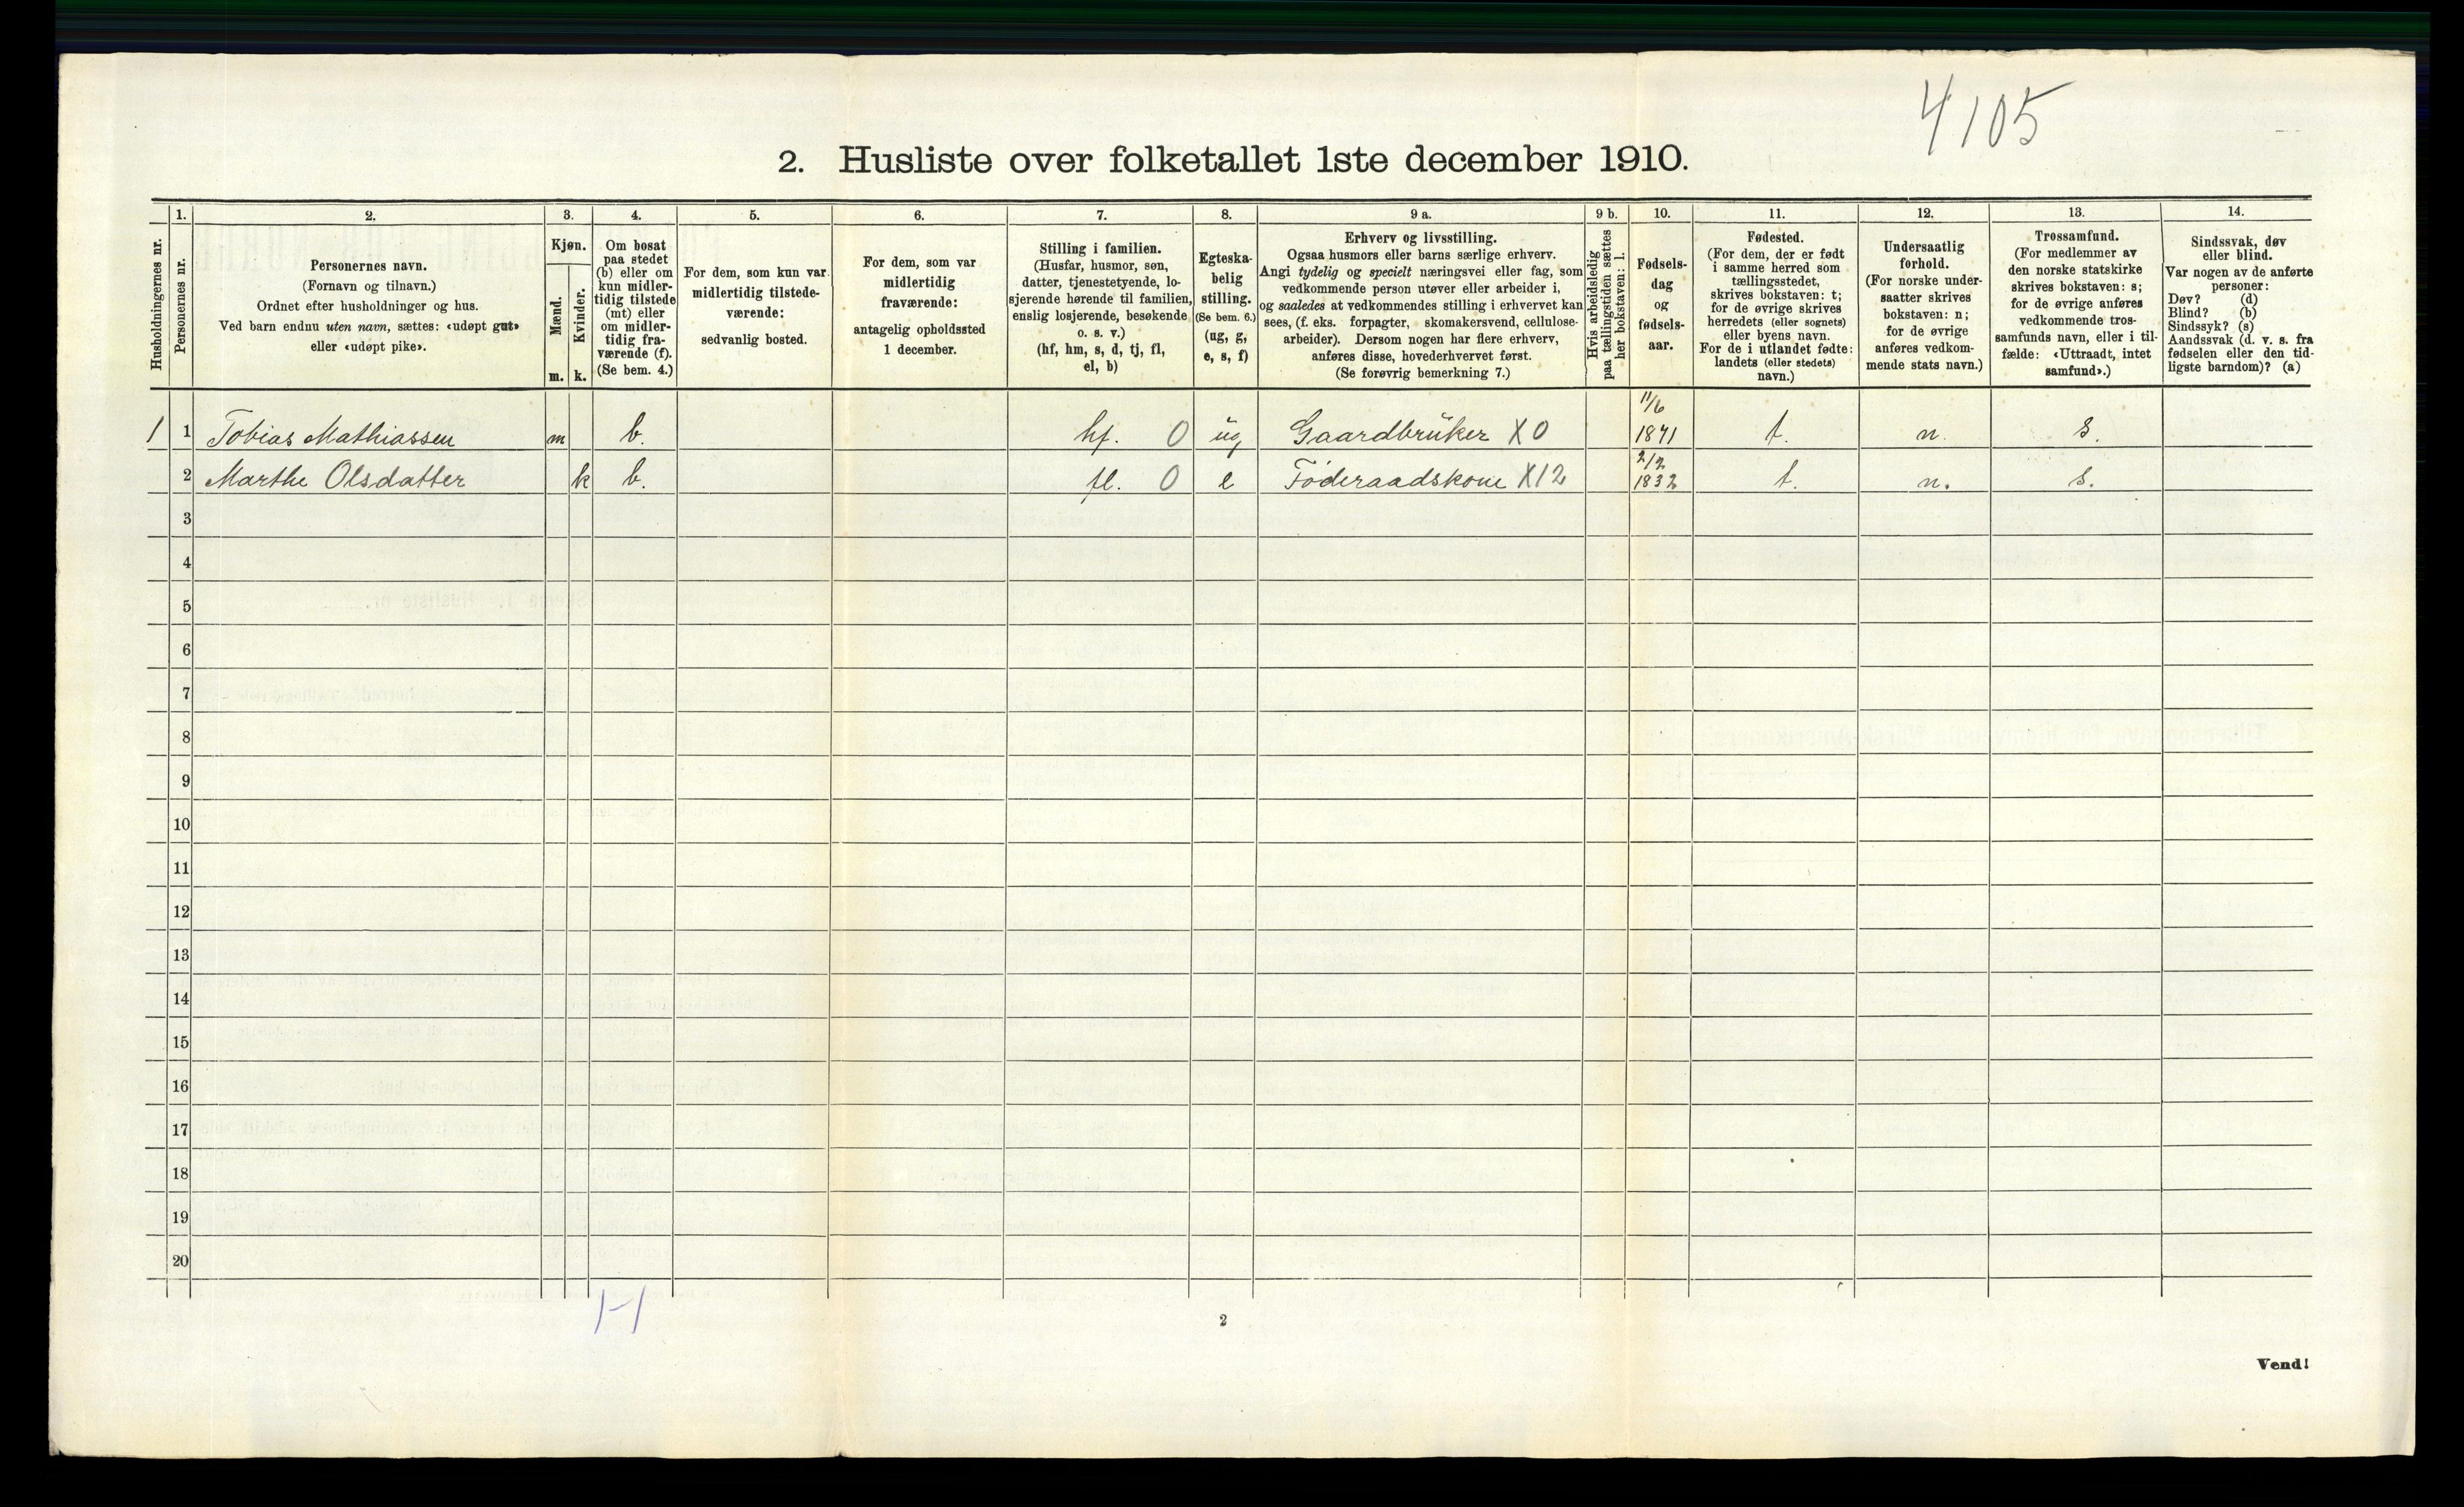 4105
2. Husliste over folketallet 1ste december 1910.
Husholdningernes nr.
1.
Personernes nr.
2.
Personernes navn.
(Fornavn og tilnavn.)
Ordnet efter husholdninger og hus.
Ved barn endnu uten navn, sættes: «udøpt gut»
eller «udøpt pike».
3.
Kjøn.
Mænd.
m.
Kvinder.
k.
4.
Om bosat
paa stedet
(b) eller om
kun midler-
tidig tilstede
(mt) eller
om midler-
tidig fra-
værende (f).
(Se bem. 4.)
5.
For dem, som kun var
midlertidig tilstede-
værende:
sedvanlig bosted.
6.
For dem, som var
midlertidig
fraværende:
antagelig opholdssted
1 december.
7.
Stilling i familien.
(Husfar, husmor, søn,
datter, tjenestetyende, lo-
sjerende hørende til familien,
enslig losjerende, besøkende
o. s. v.)
(hf, hm, s, d, tj, fl,
el, b)
8.
Egteska-
belig
stilling.
(Se bem. 6.)
(ug, g,
e, s, f)
9 a.
Erhverv og livsstilling.
Ogsaa husmors eller barns særlige erhverv.
Angi tydelig og specielt næringsvei eller fag, som
vedkommende person utøver eller arbeider i,
og saaledes at vedkommendes stilling i erhvervet kan
sees, (f. eks. forpagter, skomakersvend, cellulose-
arbeider). Dersom nogen har flere erhverv,
anføres disse, hovederhvervet først.
(Se forøvrig bemerkning 7.)
9 b.
Hvis arbeidsledig
paa tællingstiden sættes
her bokstaven: l.
10.
Fødsels-
dag
og
fødsels-
aar.
11.
Fødested.
(For dem, der er født
i samme herred som
tællingsstedet,
skrives bokstaven: t;
for de øvrige skrives
herredets (eller sognets)
eller byens navn.
For de i utlandet fødte:
landets (eller stedets)
navn.)
12.
Undersaatlig
forhold.
(For norske under-
saatter skrives
bokstaven: n;
for de øvrige
anføres vedkom-
mende stats navn.)
13.
Trossamfund.
(For medlemmer av
den norske statskirke
skrives bokstaven: s;
for de øvrige anføres
vedkommende tros-
samfunds navn, eller i til-
fælde: «Uttraadt, intet
samfund».)
14.
Sindssvak, døv
eller blind.
Var nogen av de anførte
personer:
Døv? (d)
Blind? (b)
Sindssyk? (s)
Aandssvak (d. v. s. fra
fødselen eller den tid-
ligste barndom)? (a)
1 1 Tobias Mathiassen m b. hf. 0 ug Gaardbruker X0 11/6 1871 t. n. s.
2 Marthe Olsdatter k b. fl. 0 e Føderaadskone X12 2/2 1832 t. n. s.
3
4
5
6
7
8
9
10
11
12
13
14
15
16
17
18
19
20
1-1
2
Vend!